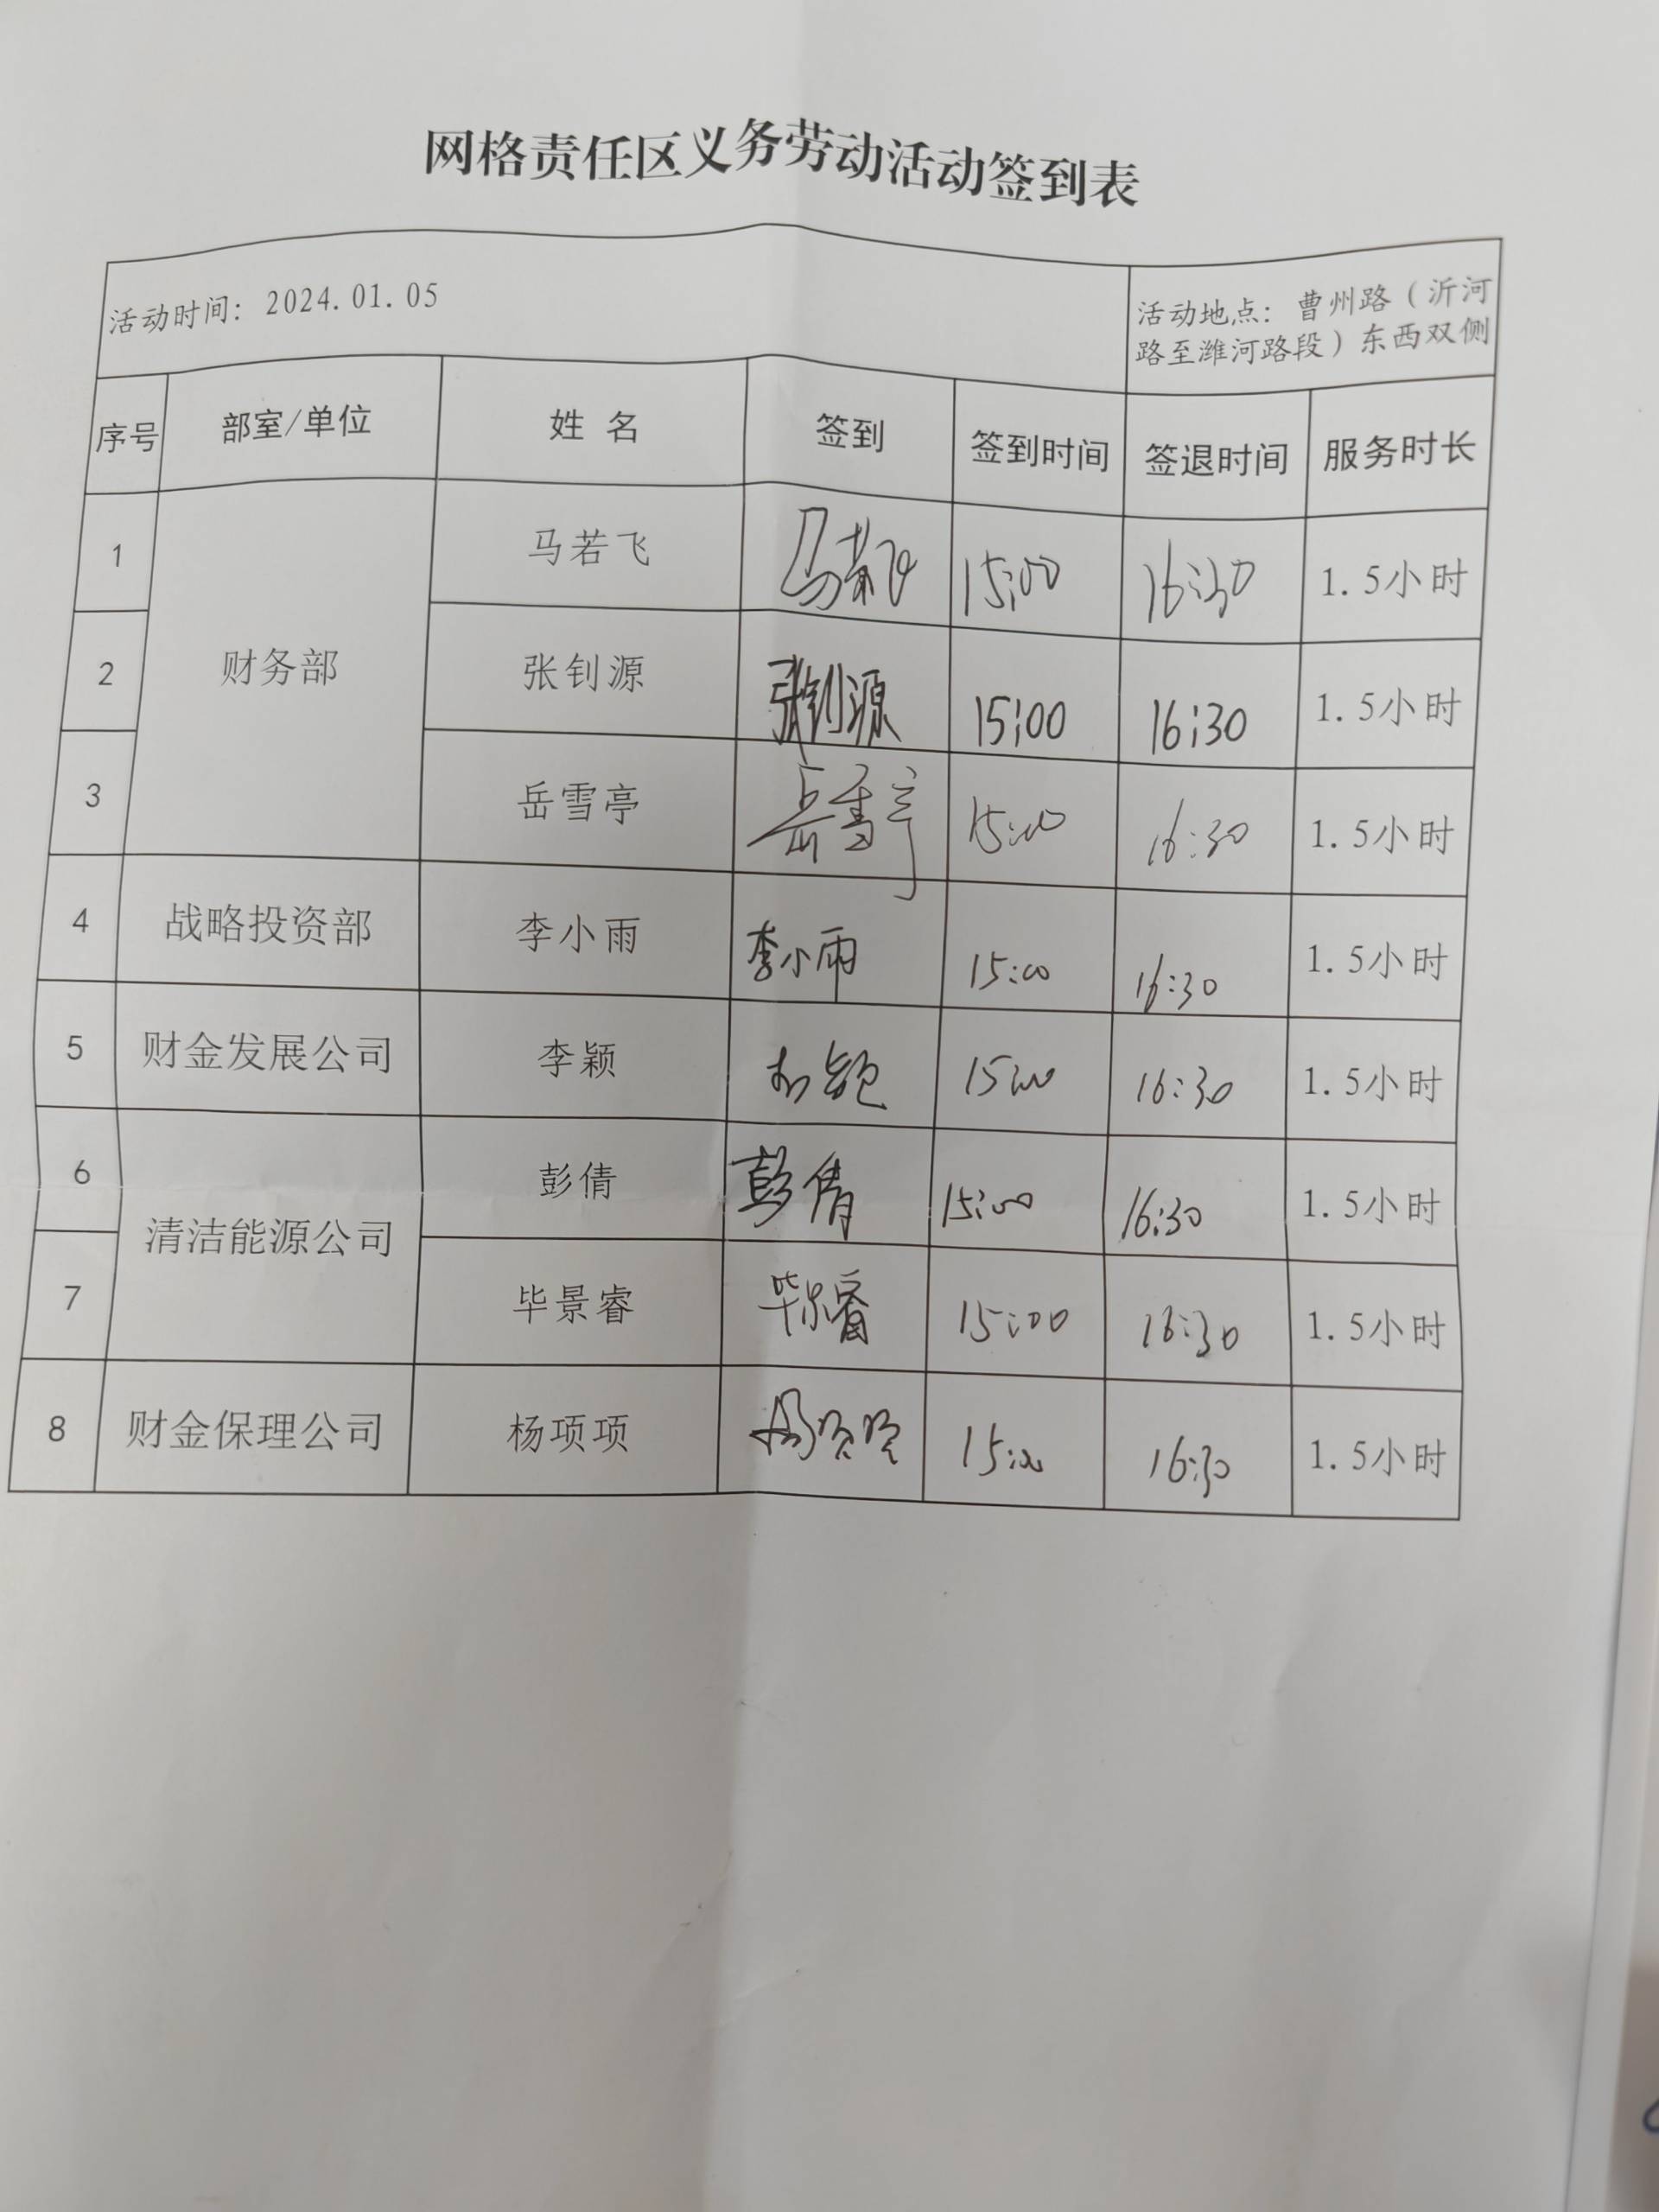 网格责任区义务劳动活动签到表
活动时间：2024.01.05
活动地点：曹州路（沂河
路至潍河路段）东西双侧
序号 部室/单位 姓 名 签到 签到时间 签退时间 服务时长
1 财务部 马若飞 马若飞 15:00 16:30 1.5小时
2 张钊源 张钊源 15:00 16:30 1.5小时
3 岳雪亭 岳雪亭 15:00 16:30 1.5小时
4 战略投资部 李小雨 李小雨 15:00 16:30 1.5小时
5 财金发展公司 李颖 李颖 15:00 16:30 1.5小时
6 清洁能源公司 彭倩 彭倩 15:00 16:30 1.5小时
7 毕景睿 毕景睿 15:00 16:30 1.5小时
8 财金保理公司 杨项项 杨项项 15:00 16:30 1.5小时